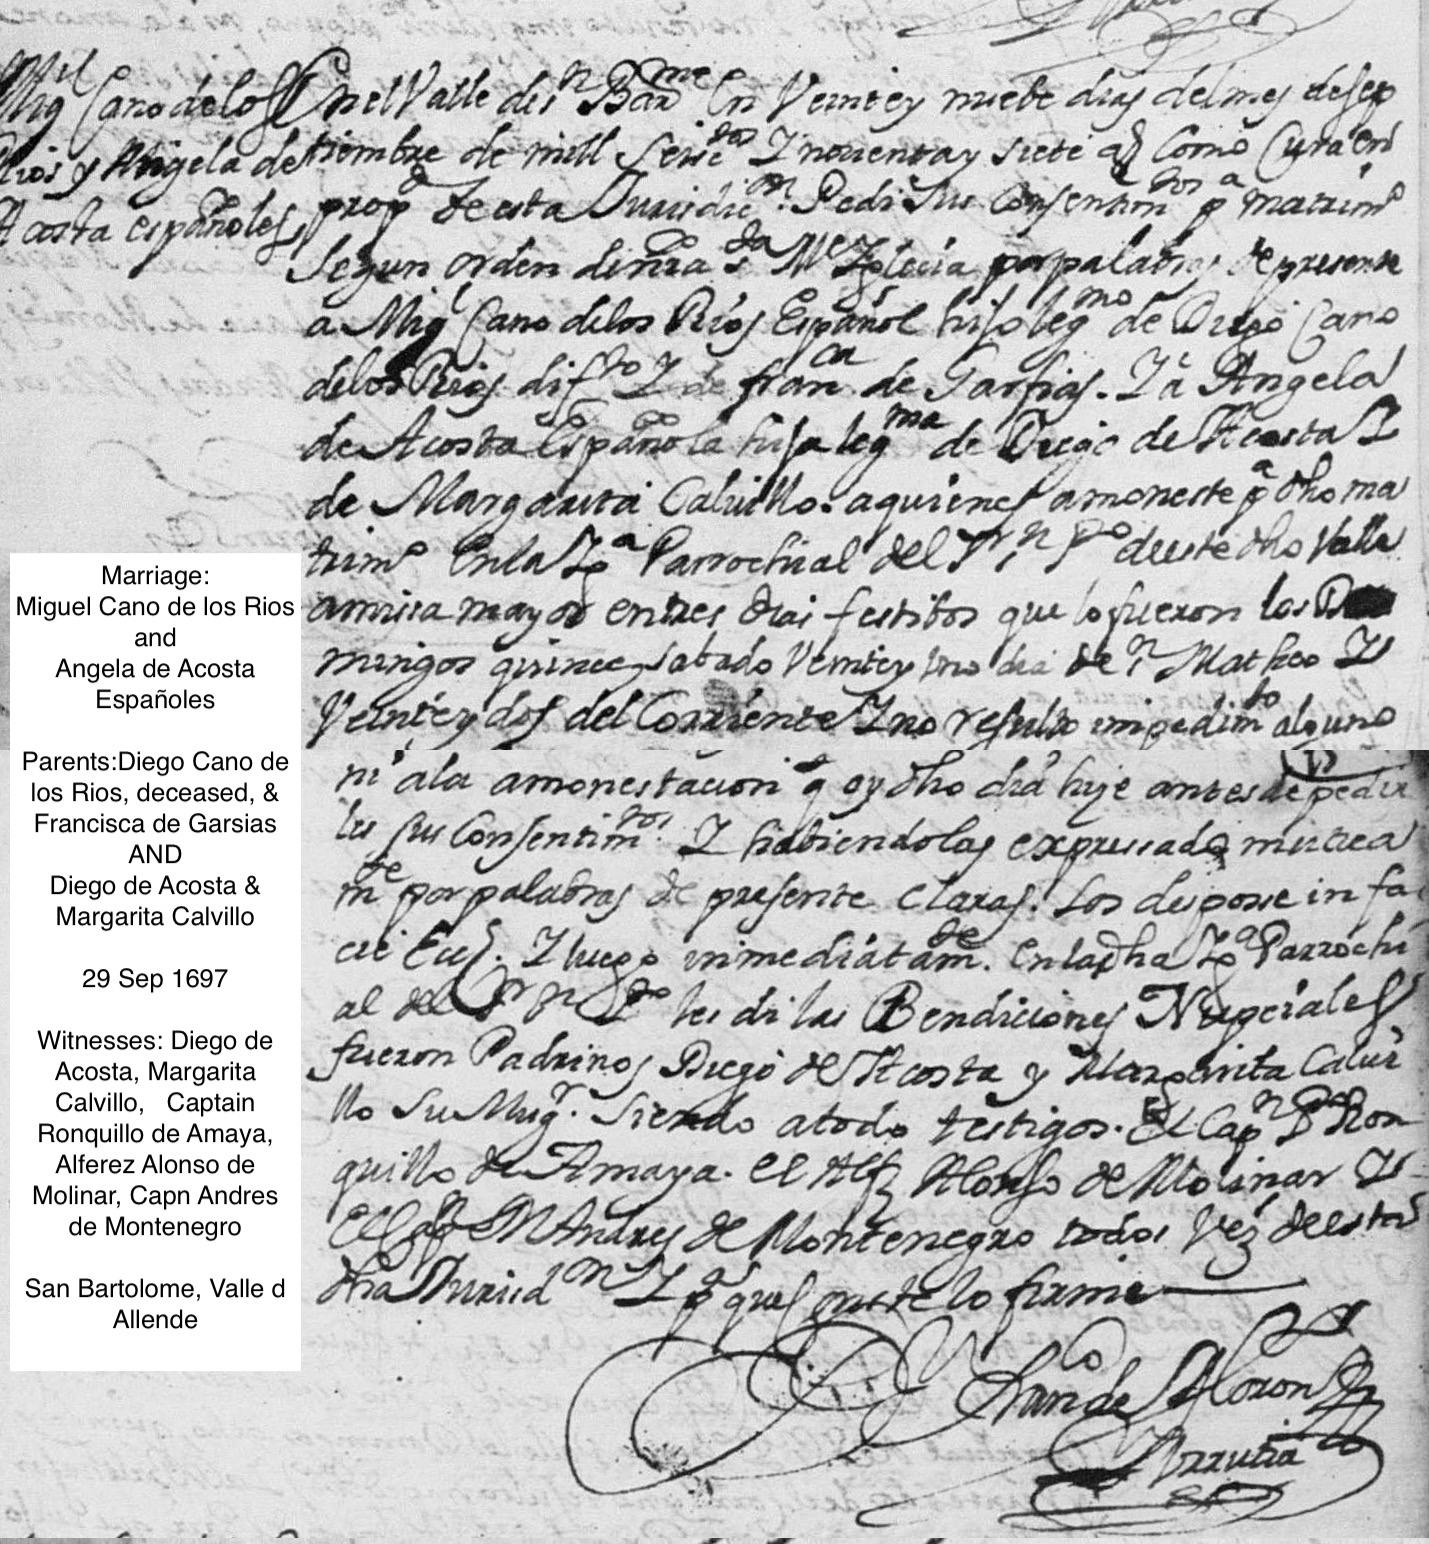 Migl Cano de los
Rios y Angela de
Acosta españoles
En el Valle de Sn Barme En Veinte y nuebe dias del mes de sep
tiembre de mill seisctos Y noventa y siete as Como Cura en
propd de esta Jurisdicn. Pedi sus Consentimtos pa matrimo
Segun orden de nra sta Me Yglecia por palabras de presente
a Migl Cano de los Rios Español hijo legmo de Diego Cano
de los Rios difto Y de franca de Garfias. Y a Angela
de Acosta Española hija legma de Diego de Acosta Y
de Margarita Calvillo. a quienes amoneste pa dho ma
trimo En la Yga Parrochial del Sr Sn Po de este dho Valle
a misa mayor en tres dias festibos que lo fueron los Do
mingos quince, sabado Veinte y uno dia de Sn Matheo Y
Veinte y dos del Corriente Y no resulto impedimto alguno
ni a la amonestacion q oy dho dia hise antes de pedir
les sus Consentimtos. Y habiendolos expresado mutua
mte por palabras de presente Claras. Los despose in fa
cie Ecc. Y luego inmediatamte. En la dha Yga Parrochi
al del Sr Sn Po les di las Bendiciones Nupciales
fueron Padrinos Diego de Acosta y Margarita Calvi
llo su Mugr. Siendo a todo testigos. El Capn Po Ron
quillo de Amaya. el Alfz Alonso de Molinar Y
El Capn Andres de Montenegro todos Vez de esta
dha Juridn Y pa que conste lo firme
Arrutia
Marriage:
Miguel Cano de los Rios
and
Angela de Acosta
Españoles
Parents:Diego Cano de
los Rios, deceased, &
Francisca de Garsias
AND
Diego de Acosta &
Margarita Calvillo
29 Sep 1697
Witnesses: Diego de
Acosta, Margarita
Calvillo, Captain
Ronquillo de Amaya,
Alferez Alonso de
Molinar, Capn Andres
de Montenegro
San Bartolome, Valle d
Allende